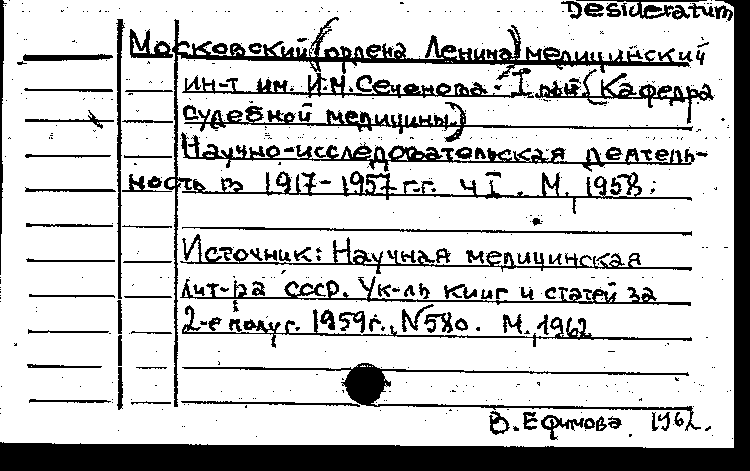 Desideratum
Московский (ордена Ленина) медицинский
ин-т им. И.М. Сеченова. I-ый (Кафедра
судебной медицины.)
Научно-исследовательская деятель-
ность в 1917-1957 г.г. ч I. М., 1958.
Источник: Научная медицинская
лит-ра СССР. Ук-ль книг и статей за
2-е полуг. 1959г., N580. М., 1962
В. Ефимова. 1962.